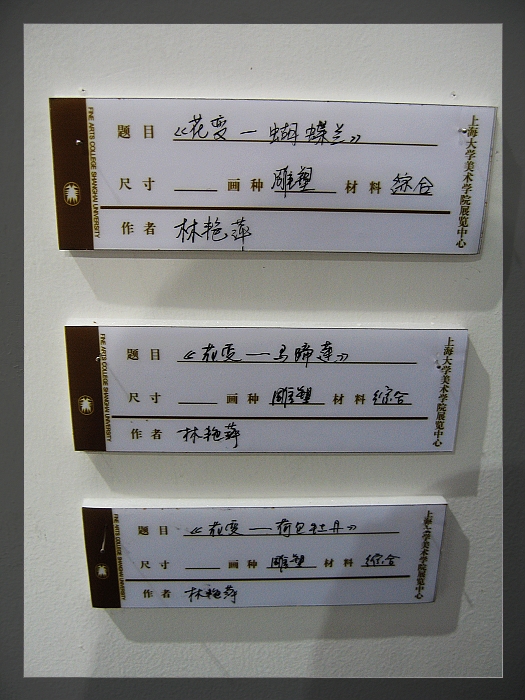 FINE ARTS COLLEGE SHANGHAI UNIVERSITY
题目 《花变—蝴蝶兰》
尺寸 画种 雕塑 材料 综合
作者 林艳萍
上海大学美术学院展览中心
FINE ARTS COLLEGE SHANGHAI UNIVERSITY
题目 《花变—马蹄莲》
尺寸 画种 雕塑 材料 综合
作者 林艳萍
上海大学美术学院展览中心
FINE ARTS COLLEGE SHANGHAI UNIVERSITY
题目 《花变—荷包牡丹》
尺寸 画种 雕塑 材料 综合
作者 林艳萍
上海大学美术学院展览中心